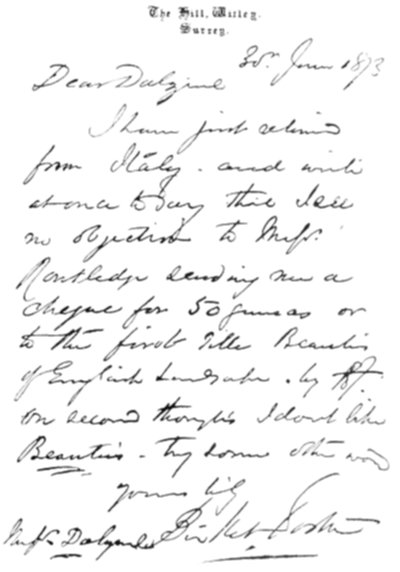 The Hill, Witley.
Surrey.
30th June 1873
Dear Dalziel
I have just returned
from Italy - and write
at once to say that I see
no objection to Messrs.
Routledge sending me a
cheque for 50 guineas or
to the first Title Beauties
of English Landscape. by BF.
on second thoughts I dont like
Beauties - Try some other word
yours truly
Birket Foster
Messrs Dalziel